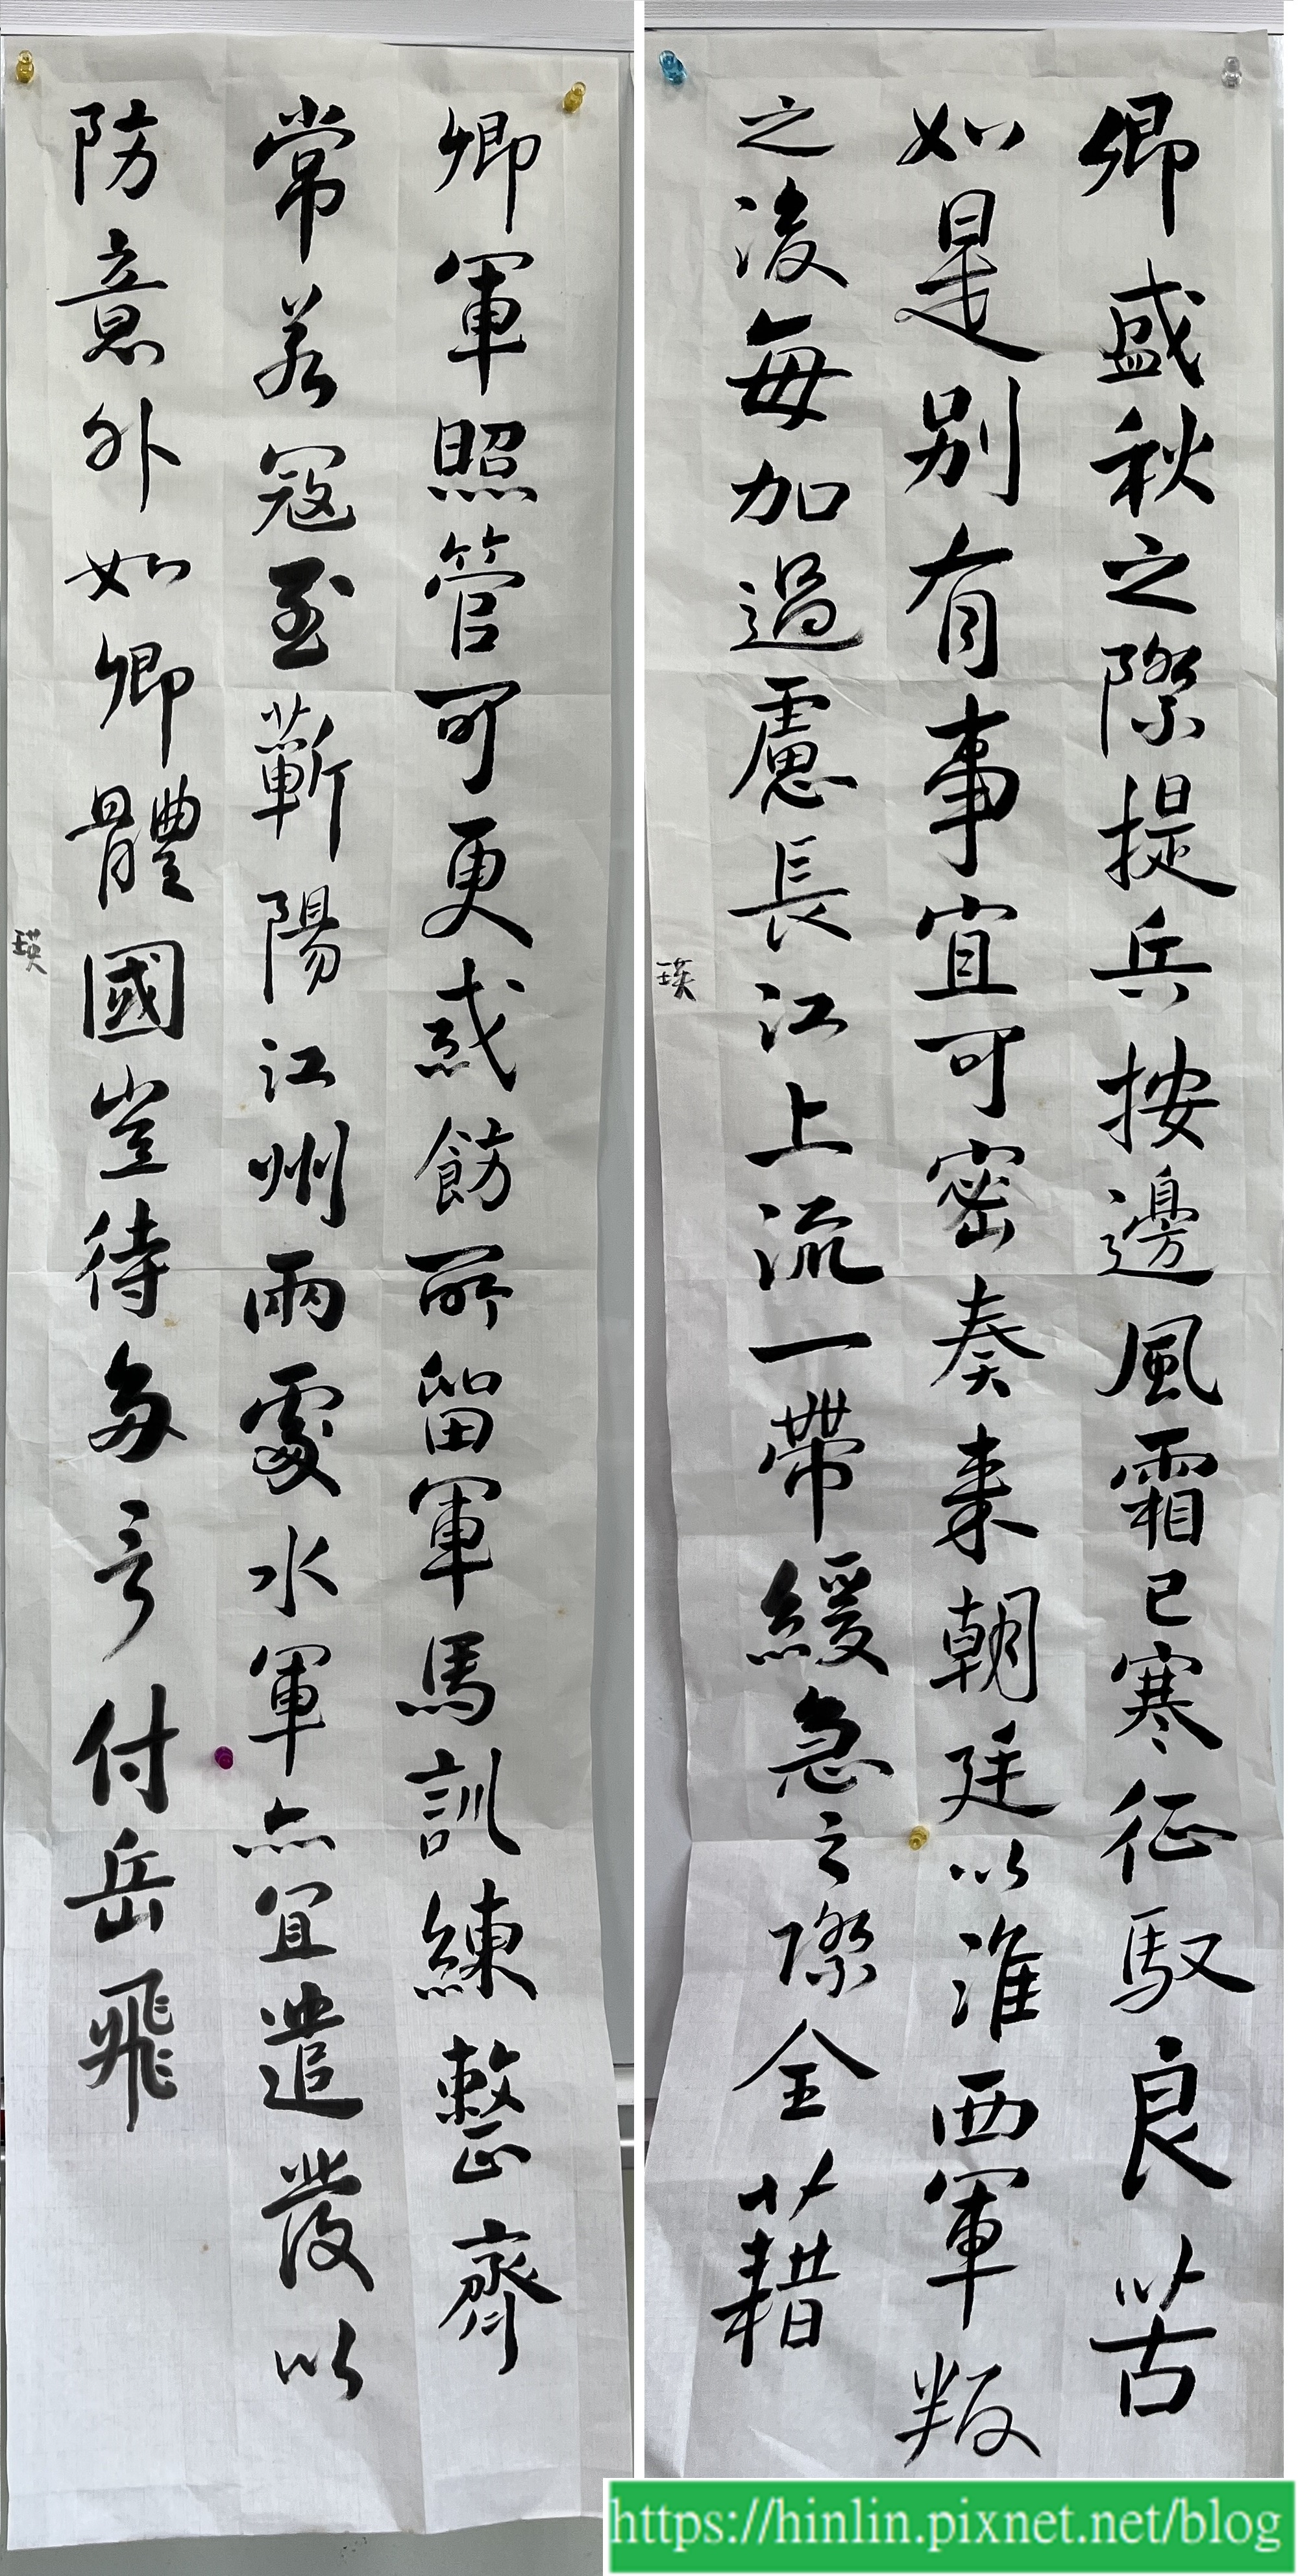 卿盛秋之際提兵按邊風霜已寒征馭良苦
如是別有事宜可密奏來朝廷以淮西軍叛
之後每加過慮長江上流一帶緩急之際全藉
瑛
卿軍照管可更戒飭所留軍馬訓練整齊
常若寇至蘄陽江州兩處水軍亦宜遣發以
防意外如卿體國豈待多言付岳飛
瑛
https://hinlin.pixnet.net/blog